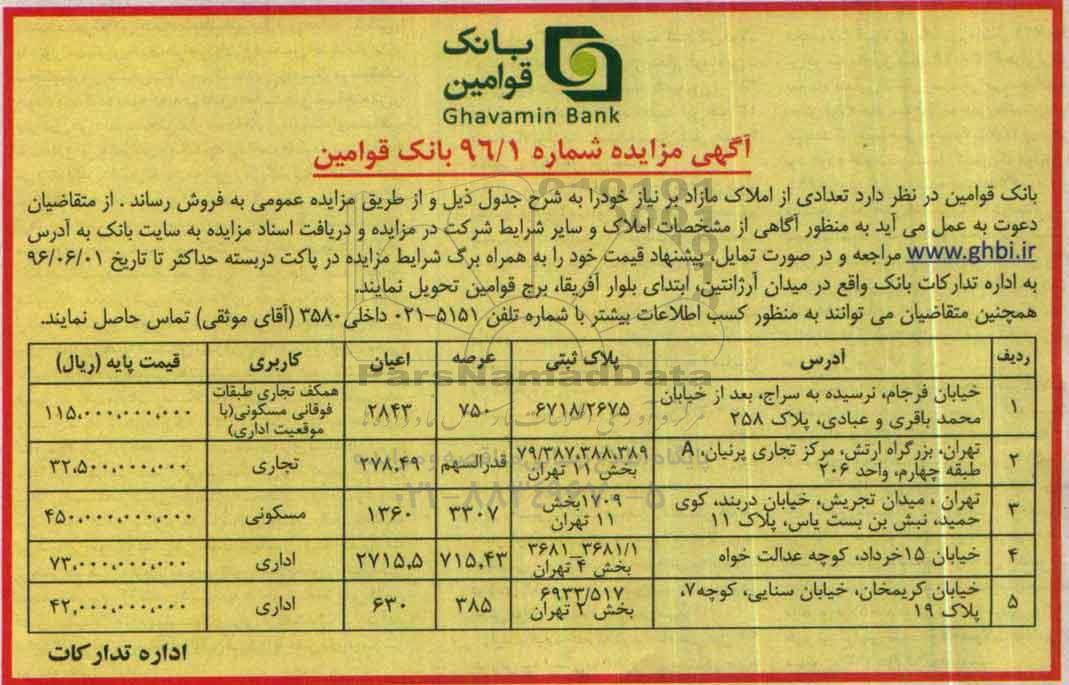 بانک
قوامین
Ghavamin Bank
آگهی مزایده شماره ۹۶/۱ بانک قوامین
بانک قوامین در نظر دارد تعدادی از املاک مازاد بر نیاز خودرا به شرح جدول ذیل و از طریق مزایده عمومی به فروش رساند . از متقاضیان
دعوت به عمل می آید به منظور آگاهی از مشخصات املاک و سایر شرایط شرکت در مزایده و دریافت اسناد مزایده به سایت بانک به آدرس
www.ghbi.ir مراجعه و در صورت تمایل، پیشنهاد قیمت خود را به همراه برگ شرایط مزایده در پاکت دربسته حداکثر تا تاریخ ۹۶/۰۶/۰۱
به اداره تدارکات بانک واقع در میدان آرژانتین، ابتدای بلوار آفریقا، برج قوامین تحویل نمایند.
همچنین متقاضیان می توانند به منظور کسب اطلاعات بیشتر با شماره تلفن ۵۱۵۱-۰۲۱ داخلی ۳۵۸۰ (آقای موثقی) تماس حاصل نمایند.
ردیف آدرس پلاک ثبتی عرصه اعیان کاربری قیمت پایه (ریال)
۱ خیابان فرجام، نرسیده به سراج، بعد از خیابان محمد باقری و عبادی، پلاک ۲۵۸ ۶۷۱۸/۲۶۷۵ ۷۵۰ ۲۸۴۳ همکف تجاری طبقات فوقانی مسکونی(با موقعیت اداری) ۱۱۵,۰۰۰,۰۰۰,۰۰۰
۲ تهران، بزرگراه ارتش، مرکز تجاری پرنیان، A طبقه چهارم، واحد ۲۰۶ ۷۹/۳۸۷,۳۸۸,۳۸۹ بخش ۱۱ تهران قدرالسهم ۲۷۸,۴۹ تجاری ۳۲,۵۰۰,۰۰۰,۰۰۰
۳ تهران ، میدان تجریش، خیابان دربند، کوی حمید، نبش بن بست یاس، پلاک ۱۱ ۱۷۰۹بخش ۱۱ تهران ۳۳۰۷ ۱۳۶۰ مسکونی ۴۵۰,۰۰۰,۰۰۰,۰۰۰
۴ خیابان ۱۵خرداد، کوچه عدالت خواه ۳۶۸۱_۳۶۸۱/۱ بخش ۴ تهران ۷۱۵,۴۳ ۲۷۱۵,۵ اداری ۷۳,۰۰۰,۰۰۰,۰۰۰
۵ خیابان کریمخان، خیابان سنایی، کوچه۷، پلاک ۱۹ ۶۹۳۳/۵۱۷ بخش ۲ تهران ۳۸۵ ۶۳۰ اداری ۴۲,۰۰۰,۰۰۰,۰۰۰
اداره تدارکات
ParsNamadData